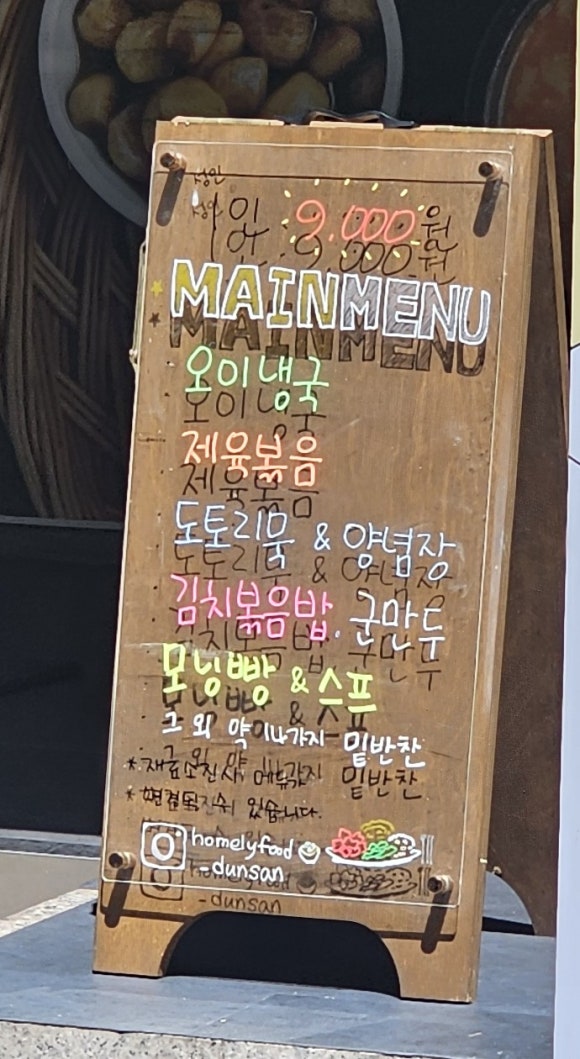 성인
1인 9.000원
MAINMENU
오이냉국
제육볶음
도토리묵 & 양념장
김치볶음밥. 군만두
모닝빵 & 스프
그 외 약 12가지 밑반찬
* 재료소진시 메뉴가
* 변경될 수 있습니다.
homelyfood
-dunsan